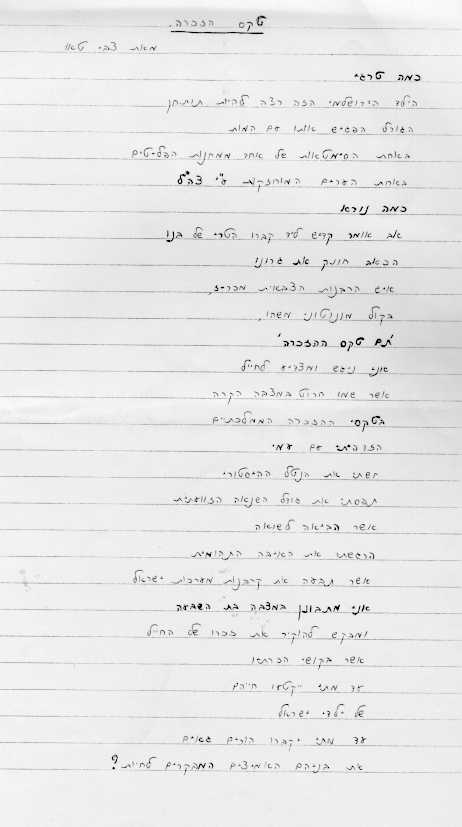 טקס הזכרה.
מאת צבי
כמה טרגי
הילד הירושלמי הזה רצה להיות תותחן
הגורל הפגיש אותו עם המות
באחת הסימטאות של אחד ממחנות הפליטים
באחת הערים המוחזקות ע"י צה"ל
כמה נורא
אב אומר קדיש ליד קברו הטרי של בנו
הכאב חונק את גרונו
איש הרבנות הצבאית מכריז,
בקול מונוטוני משהו,
'תם טקס ההזכרה'
אני ניגש ומצדיע לחייל
אשר שמו חרוט במצבה הקרה
בטקסי ההזכרה הממלכתיים
הזדהיתי עם עמי
חשתי את הנטל ההיסטורי
תפסתי את גודל השנאה הזוועתית
אשר הביאה לשואה
הרגשתי את האיבה התהומית
אשר תבעה את קרבנות מערכות ישראל
אני מתבונן במצבה בת השבעה
ומבקש להוקיר את זכרו של החייל
אשר בקושי הכרתיו
עד מתי יקטעו חייהם
של ילדי ישראל
עד מתי יקברו הורים גאים
את בניהם האמיצים המבקרים לחיות?